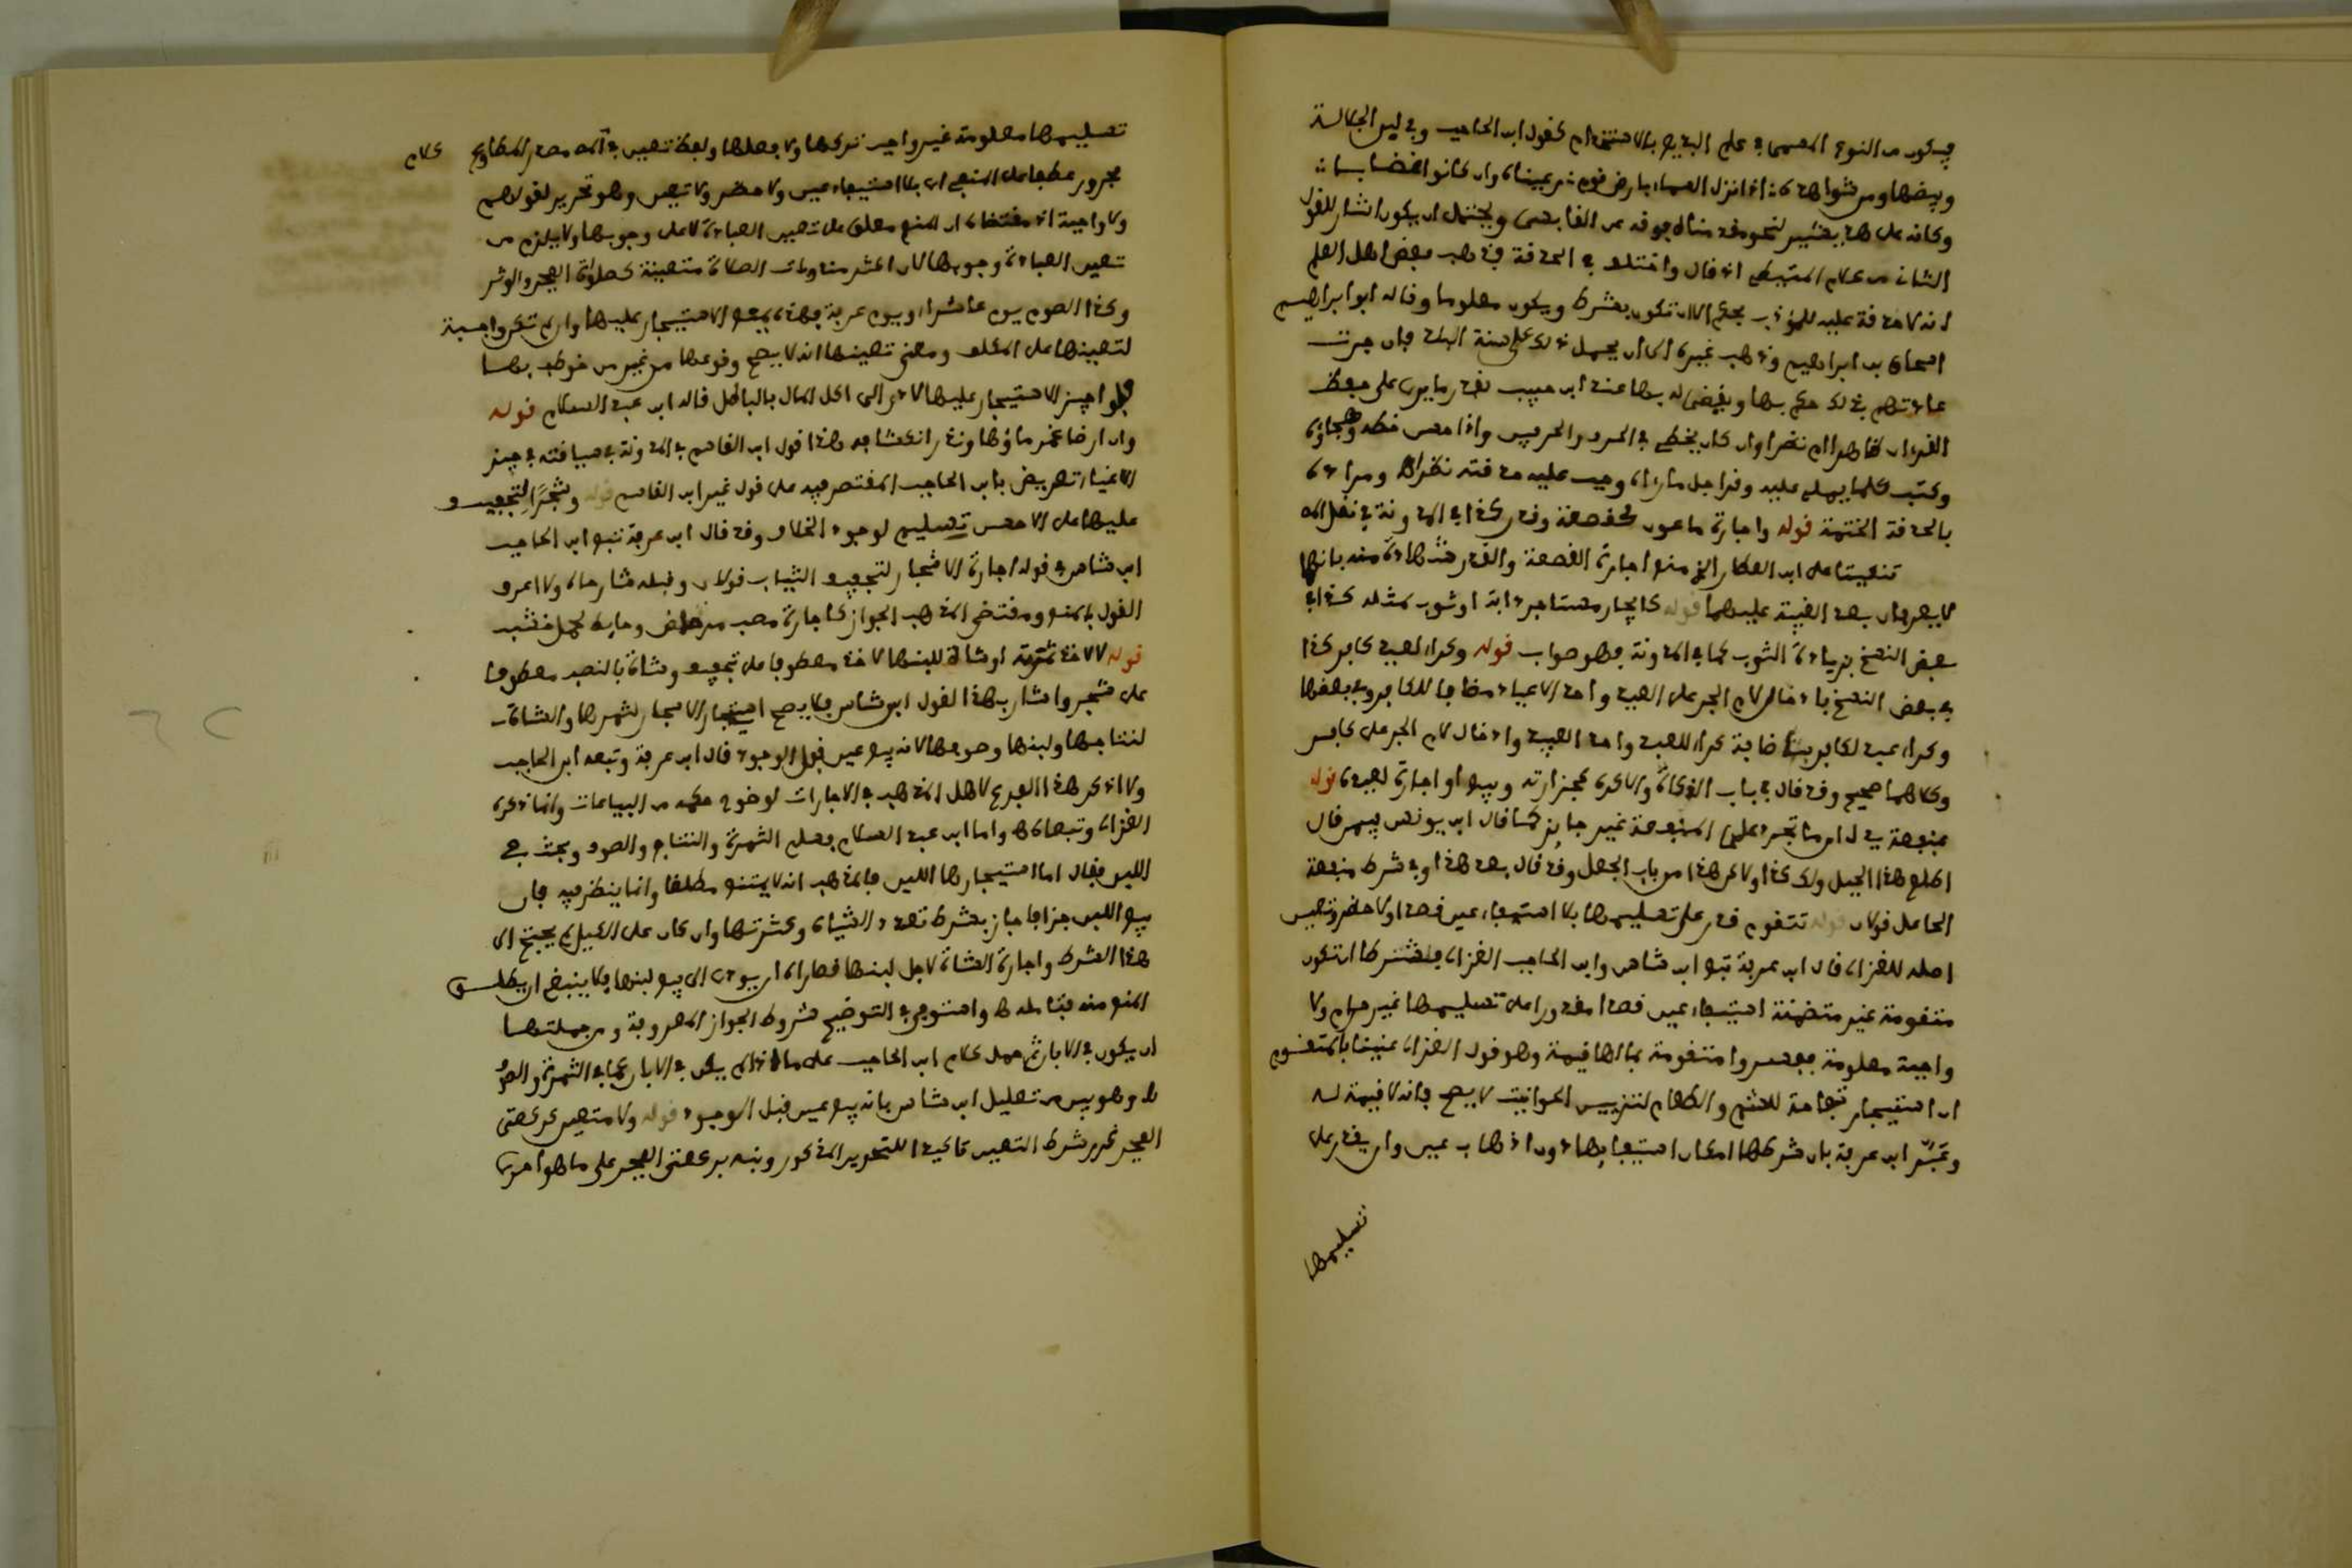 فيكون من النوع المسمى في علم البديع بالاستخدام كقول ابن الحاجب وفي لبن الجلالة
وبيضها ومن شواهده: اذا نزل السماء بارض قوم: رعيناه وان كانوا غضابا:
وكانه على هذا يشير لنحو ما قدمناه فوقه عن القابسي ويحتمل ان يكون اشار للقول
الشاذ من كلام المتيطي اذ قال واختلف في الحذقة فذهب بعض اهل العلم
انه لا حذقة عليه للمؤدب بحكم الا ان تكون بشرط ويكون معلوما وقاله ابو ابراهيم
اسحاق بن ابراهيم وذهب غيره الى ان يحمل ذلك على سنة البلد فان جرت
عادتهم بذلك حكم بها ويقضى له بها عند ابن حبيب
القرءان ظاهرا ام نظرا وان كان يخطئ في السرد والحرفين واذا حسن خطه وهجاؤه
وكتب كلما يملى عليه وقرا جل ما رءاه وجب عليه حذقته نظرا ومراده
بالحذقة الختمة قوله واجارة ماعون كقصعة وقدر كذا في المدونة في نقل
تنكيتا على ابن العطار الذي منع اجارة القصعة والقدر منه بانها
لا يعرفان بعد الغيبة عليهما قوله كايجار مستاجر دابة او ثوب لمثله كذا في
بعض النسخ بزيادة الثوب كما في المدونة فهو صواب قوله وكراء لعبد كافر كذا
في بعض النسخ بادخال لام الجر على العبد واحد الاعباد مضافا للكافر وفي بعضها
وكراء عبد لكافر باضافة كراء للعبد واحد العبيد وادخال لام الجر على كافر
وكلاهما صحيح وقد قال في باب الذكاة والاكره كجزارته وبيع او اجارة لعبده قوله
بمنفعة اذ ما تجرد على المنفعة غير جايز كما قال ابن يونس فيمن قال
اطلع هذا الجبل ولك كذا ولا كن هذا من باب الجعل وقد قال بعد هذا وفي شرط منفعة
الجاعل قولان قوله تتقوم قدر على تسليمها بلا استيفاء عين قصدا ولا حضر وتعيين
اصله للغزالي قال ابن عرفة تبع ابن شاس وابن الحاجب الغزالي فاشترطا ان تكون
متقومة غير متضمنة استيفاء عين قصدا مقدورا على تسليمها غير حرام ولا
واجبة معلومة ففسروا متقومة بما لها قيمة وهو قول الغزالي عنينا بالمتقوم
ان استيجار تفاحة للشم والطعام لتزيين الحوانيت لا يصح فانه لا قيمة له
وفسر ابن عرفة بان شرطها امكان استيفايها دون اذهاب عين وان يقدر على
تسليمها
تسليمها معلومة غير واجب تركها ولا فعلها ولفظ تعيين في
مجرور عطفا على المنفي اي بلا استيفاء عين ولا حضر ولا تعيين وهو تحرير لقولهم
ولا واجبة اذ مقتضاه ان المنع معلق على تعيين العبادة لا على وجوبها ولا يلزم من
تعيين العبادة وجوبها لان اكثر مندوبات الصلاة متعينة كصلوة الفجر والوتر
وكذا الصوم يوم عاشوراء ويوم عرفة فهذه يمنع الاستيجار عليها وان لم تكن واجبة
لتعيينها على المكلف ومعنى تعيينها انه لا يصح وقوعها من غير من خوطب بها
فلو اجيز الاستيجار عليها لادى الى اكل المال بالباطل قاله ابن عبد السلام قوله
وان ارضا غمر ماؤها وندر انكشافه هذا قول ابن القاسم في المدونة في
تعريض بابن الحاجب المقتصر فيه على قول غير ابن القاسم قوله وشجرا لتجفيف
عليها على الاحسن تسليم لوجود الخلاف وقد قال ابن عرفة تبع ابن الحاجب
ابن شاس في قوله اجارة الاشجار لتجفيف الثياب قولان وقبله شارحاه ولا اعرف
القول بالمنع ومقتضى المذهب الجواز كاجارة مصب مرحاض وحايط لحمل خشب
قوله لا لاخذ ثمرته او شاة للبنها لاخذ معطوفا على تجفيف وشاة بالنصب معطوفا
على شجر واشار بهذا لقول ابن شاس فلا يصح استيجار الاشجار لثمرها والشاة
لنتاجها ولبنها وصوفها لانه بيع عين قبل الوجود قال ابن عرفة وتبعه ابن الحاجب
ولا اذكر هذا الفرع لاهل المذهب في الاجارات لوضوح حكمه من البياعات وانما ذكره
الغزالي وتبعاه واما ابن عبد السلام فسلم الثمرة والنتاج والصوف وبحث في
اللبن فقال اما استيجارها للبن فالمذهب انه لا يمتنع مطلقا وانما ينظر فيه فان
بيع اللبن جزافا جاز بشرط تعدد الشياه وكثرتها وان كان على الكيل لم يحتج الى
هذا الشرط واجارة الشاة لاجل لبنها قصاراه ان يودي الى بيع لبنها فلا ينبغي ان يطلق
المنع منه فتامله واستوفى في التوضيح شروط الجواز المعروفة ومن جملتها
ان يكون في الابان ثم حمل كلام ابن الحاجب على ما اذا لم يكن في الابان كما في الثمرة والصوف
وهو بين من تعليل ابن شاس بانه بيع عين قبل الوجود قوله ولا متعين كركعتي
الفجر غير بشرط التعيين للتحرير المذكور ونبه بركعتي الفجر على ما هو احرى
كلام